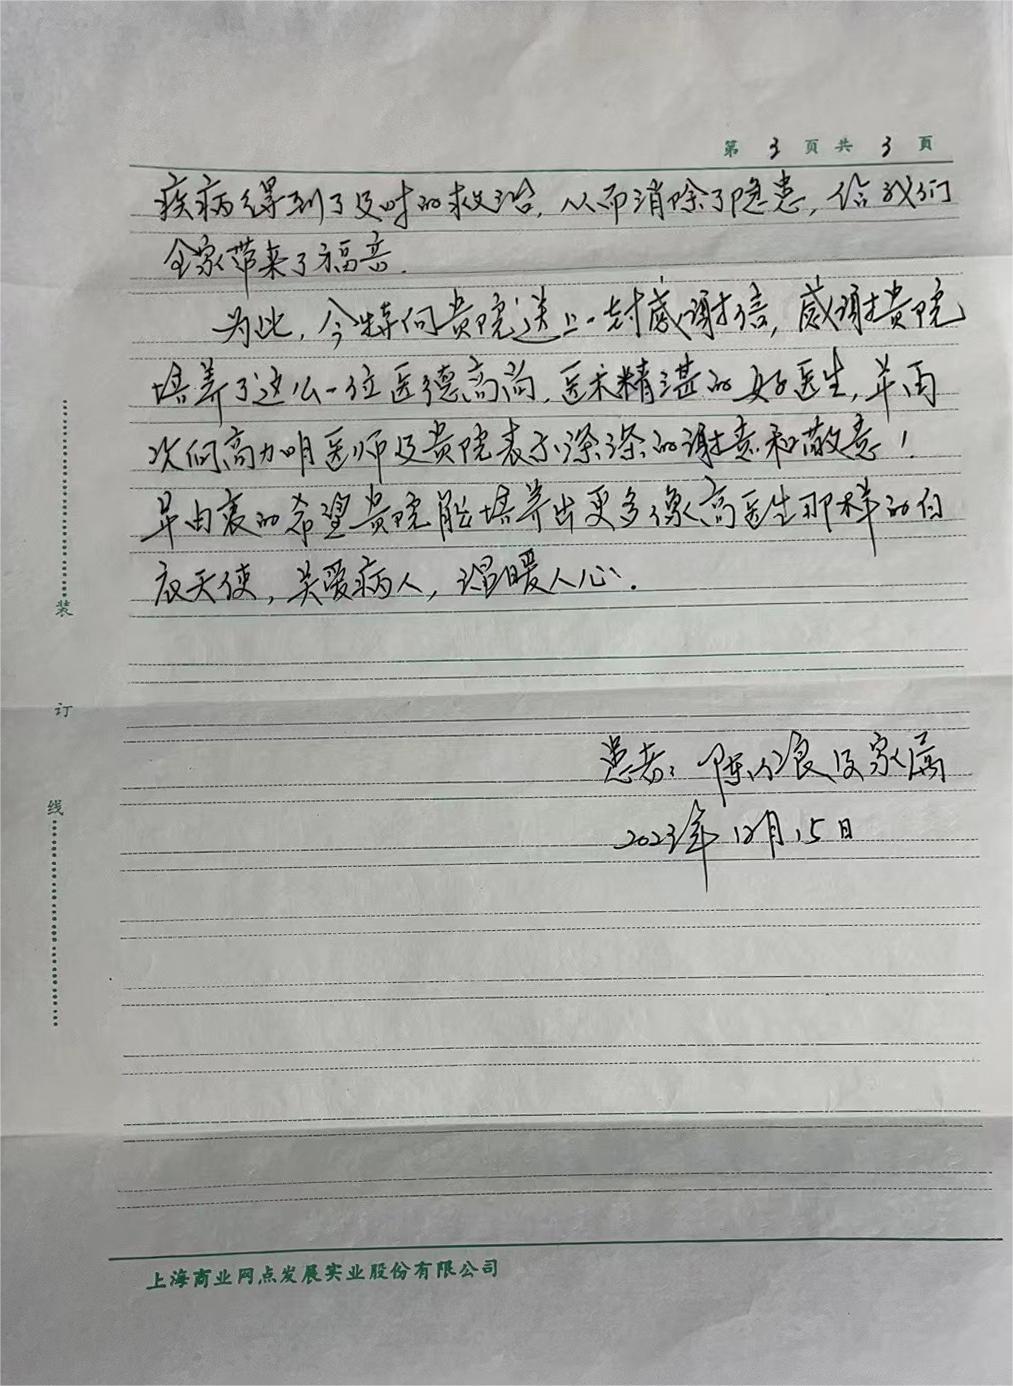 第 3 頁 共 3 頁
疾病得到了及时的救治，从而消除了隐患，给我们
全家带来了福音.
为此，今特向贵院送上一封感谢信，感谢贵院
培养了这么一位医德高尚，医术精湛的好医生，并再
次向高加明医师及贵院表示深深的谢意和敬意！
并由衷的希望贵院能培养出更多像高医生那样的白
衣天使，关爱病人，温暖人心.
患者：陈良及家属
2023年12月15日
装
订
线
上海商业网点发展实业股份有限公司